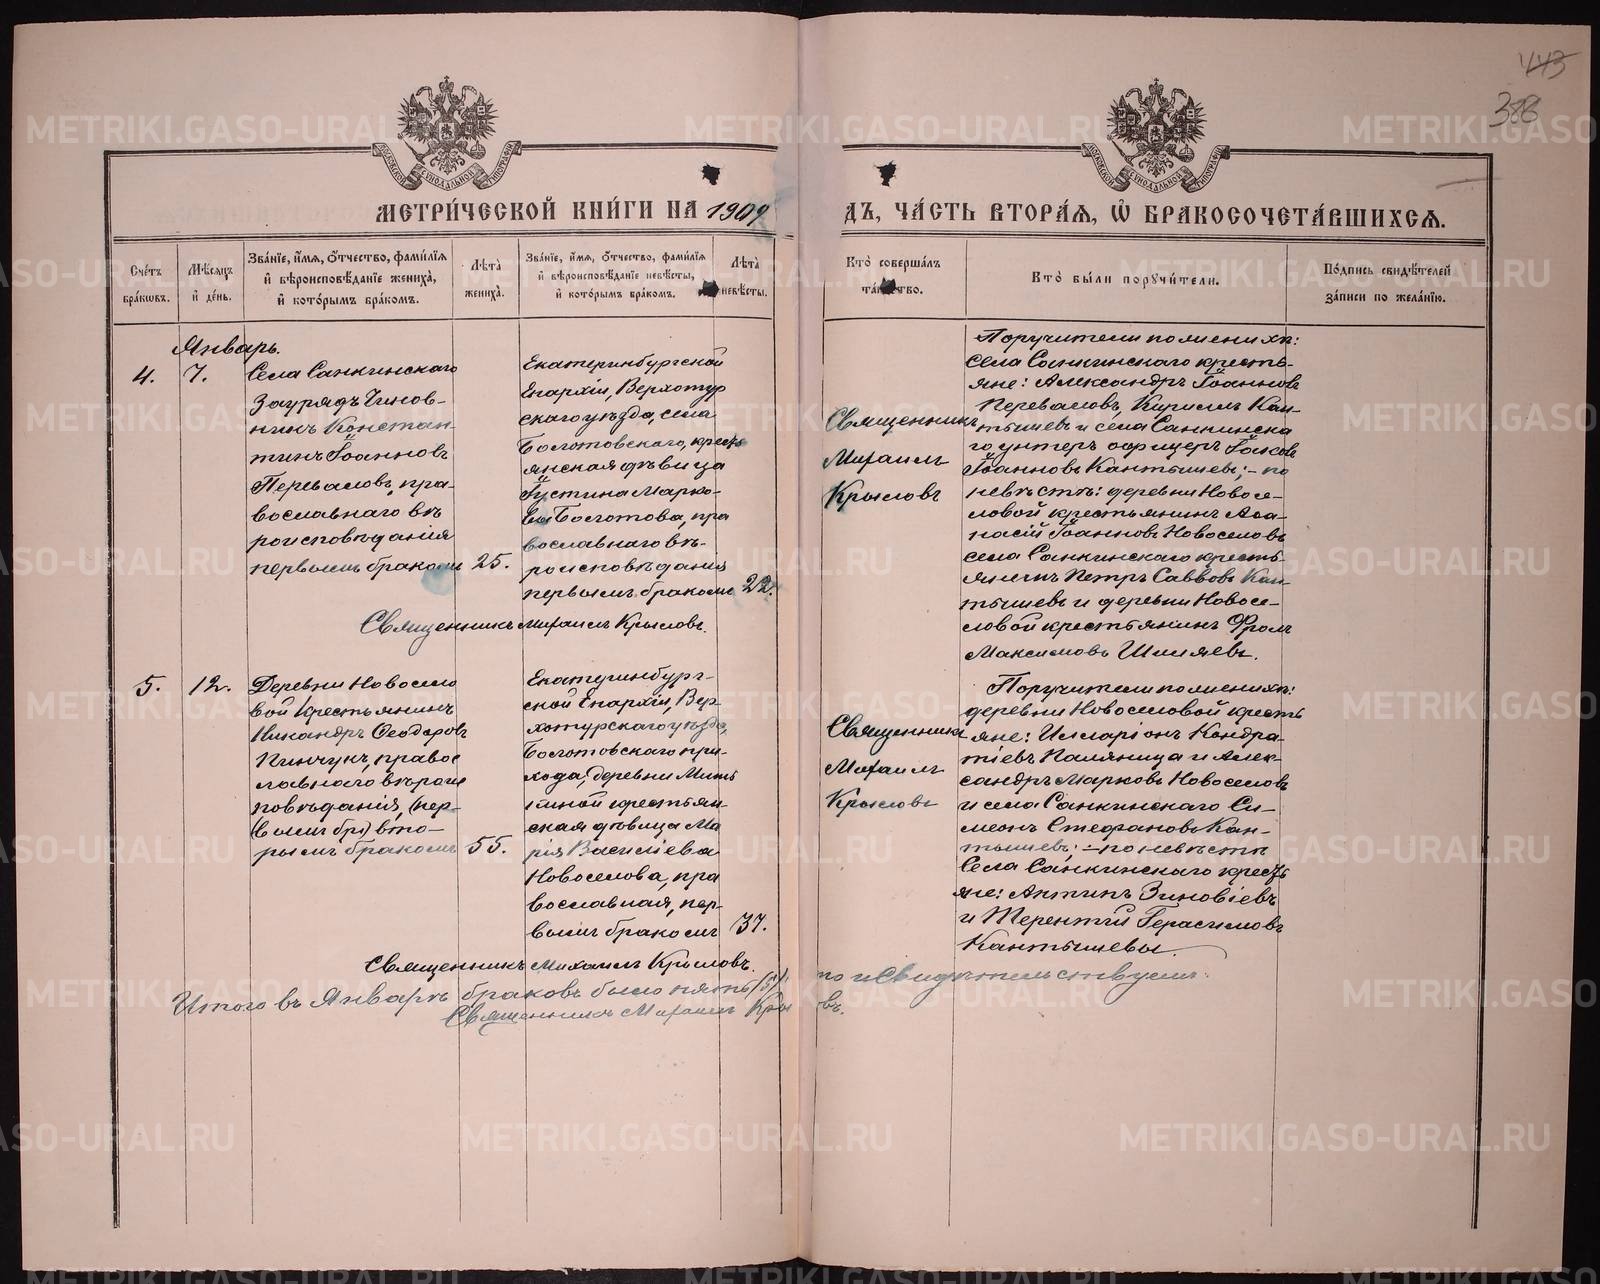 443
388
МЕТРИ́ЧЕСКОЙ КНИ́ГИ НА 1909
ДЪ, ЧА́СТЬ ВТОРА́Ѧ, Ѽ БРАКОСОЧЕТА́ВШИХСѦ.
Сче́тъ бра́кѡвъ.
Мѣ́сѧцъ и҆ де́нь.
Зва́нїе, и҆́мѧ, о҆́тчество, фами́лїѧ и҆ вѣроисповѣ́данїе жениха̀, и҆ кото́рымъ бра́комъ.
Лѣ́та жениха̀.
Зва́нїе, и҆́мѧ, о҆́тчество, фами́лїѧ и҆ вѣроисповѣ́данїе невѣ́сты, и҆ кото́рымъ бра́комъ.
Лѣ́та невѣ́сты.
Кто̀ соверша́лъ та́инство.
Кто̀ бы́ли порꙋчи́тели.
По́дпись свидѣ́телей за́писи по жела́нїю.
Январь.
4.
7.
Села Санкинскаго
Заурядъ Чинов-
никъ Констан-
тинъ Іоанновъ
Переваловъ, пра-
вославнаго вѣ
роисповѣданія
первымъ бракомъ
25.
Екатеринбургской
Епархіи, Верхотур
скаго уѣзда, села
Болотовскаго, кресть
янская дѣвица
Іустина Марко-
ва Болотова, пра
вославнаго вѣ-
роисповѣданія
первымъ бракомъ
22.
Священникъ Михаилъ Крыловъ.
Священникъ
Михаилъ
Крыловъ
Поручители по женихѣ:
села Санкинскаго кресть-
яне: Александръ Іоанновъ
Переваловъ, Кириллъ Кан-
тышевъ и села Санкинска
го унтеръ офицеръ Іаковъ
Іоанновъ Кантышевъ; – по
невѣстѣ: деревни Новосе-
ловой крестьянинъ Аѳа-
насій Іоанновъ Новоселовъ
села Санкинскаго кресть
янинъ Петръ Саввовъ Кан-
тышевъ и деревни Новосе-
ловой крестьянинъ Фролъ
Максимовъ Шиляевъ.
5.
12.
Деревни Новосело
вой крестьянинъ
Никандръ Ѳеодоровъ
Пинчукъ, правос
лавнаго вѣроис
повѣданія, (пер-
вымъ бр) вто-
рымъ бракомъ
55.
Екатеринбург-
ской Епархіи, Вер-
хотурскаго уѣзда,
Болотовскаго при-
хода, деревни Мить
киной крестьян-
ская дѣвица Ма
рія Василіева
Новоселова, пра
вославная, пер-
вымъ бракомъ
37.
Священникъ Михаилъ Крыловъ.
Священникъ
Михаилъ
Крыловъ
Поручители по женихѣ:
деревни Новоселовой кресть
яне: Илларіонъ Кондра-
тіевъ Паляница и Алек-
сандръ Марковъ Новоселовъ
и села Санкинскаго Си-
меонъ Стефановъ Кан-
тышевъ; – по невѣстѣ
Села Санкинскаго кресть
яне: Антипъ Зиновіевъ
и Терентій Герасимовъ
Кантышевы.
Итого въ Январѣ браковъ было пять (5), то и свидѣтельствуемъ:
Священникъ Михаилъ Крыловъ.
METRIKI.GASO-URAL.RU